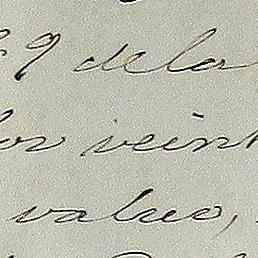 9 dela
or veint
value,